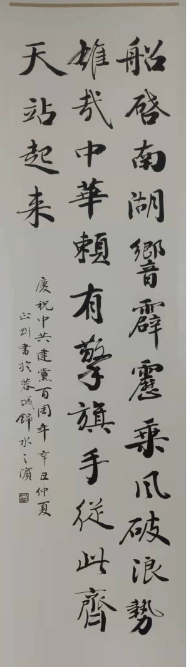 船啓南湖響霹靂乘风破浪勢
雄哉中華賴有擎旗手從此齊
天站起来
慶祝中共建黨百周年辛丑仲夏
書於蓉城錦水之濱